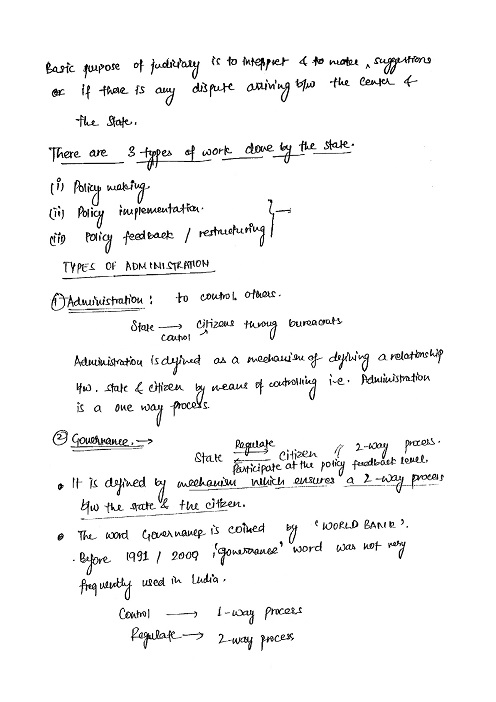 Basic purpose of judiciary is to interpret & to make, suggestions
or if there is any dispute arising b/w the Center &
the State.
There are 3 types of work done by the state.
(i) Policy making.
(ii) Policy implementation.
(iii) Policy feedback / restructuring
TYPES OF ADMINISTRATION
① Administration : to control others.
State ⟶ Citizens throug bureacrats
Control
Administration is defined as a mechanism of defining a relationship
b/w. state & citizen by means of controlling i.e. Administration
is a one way process.
② Governance. →
Regulate
State ⇄ Citizen // 2-way process.
Participate at the policy feedback level.
• It is defined by mechanism which ensures a 2-way process
b/w the state & the citizen.
• The word Governance is coined by 'WORLD BANK'.
. Before 1991 / 2009, 'governance' word was not very
frequently used in India.
Control ⟶ 1-way process
Regulate ⟶ 2-way process